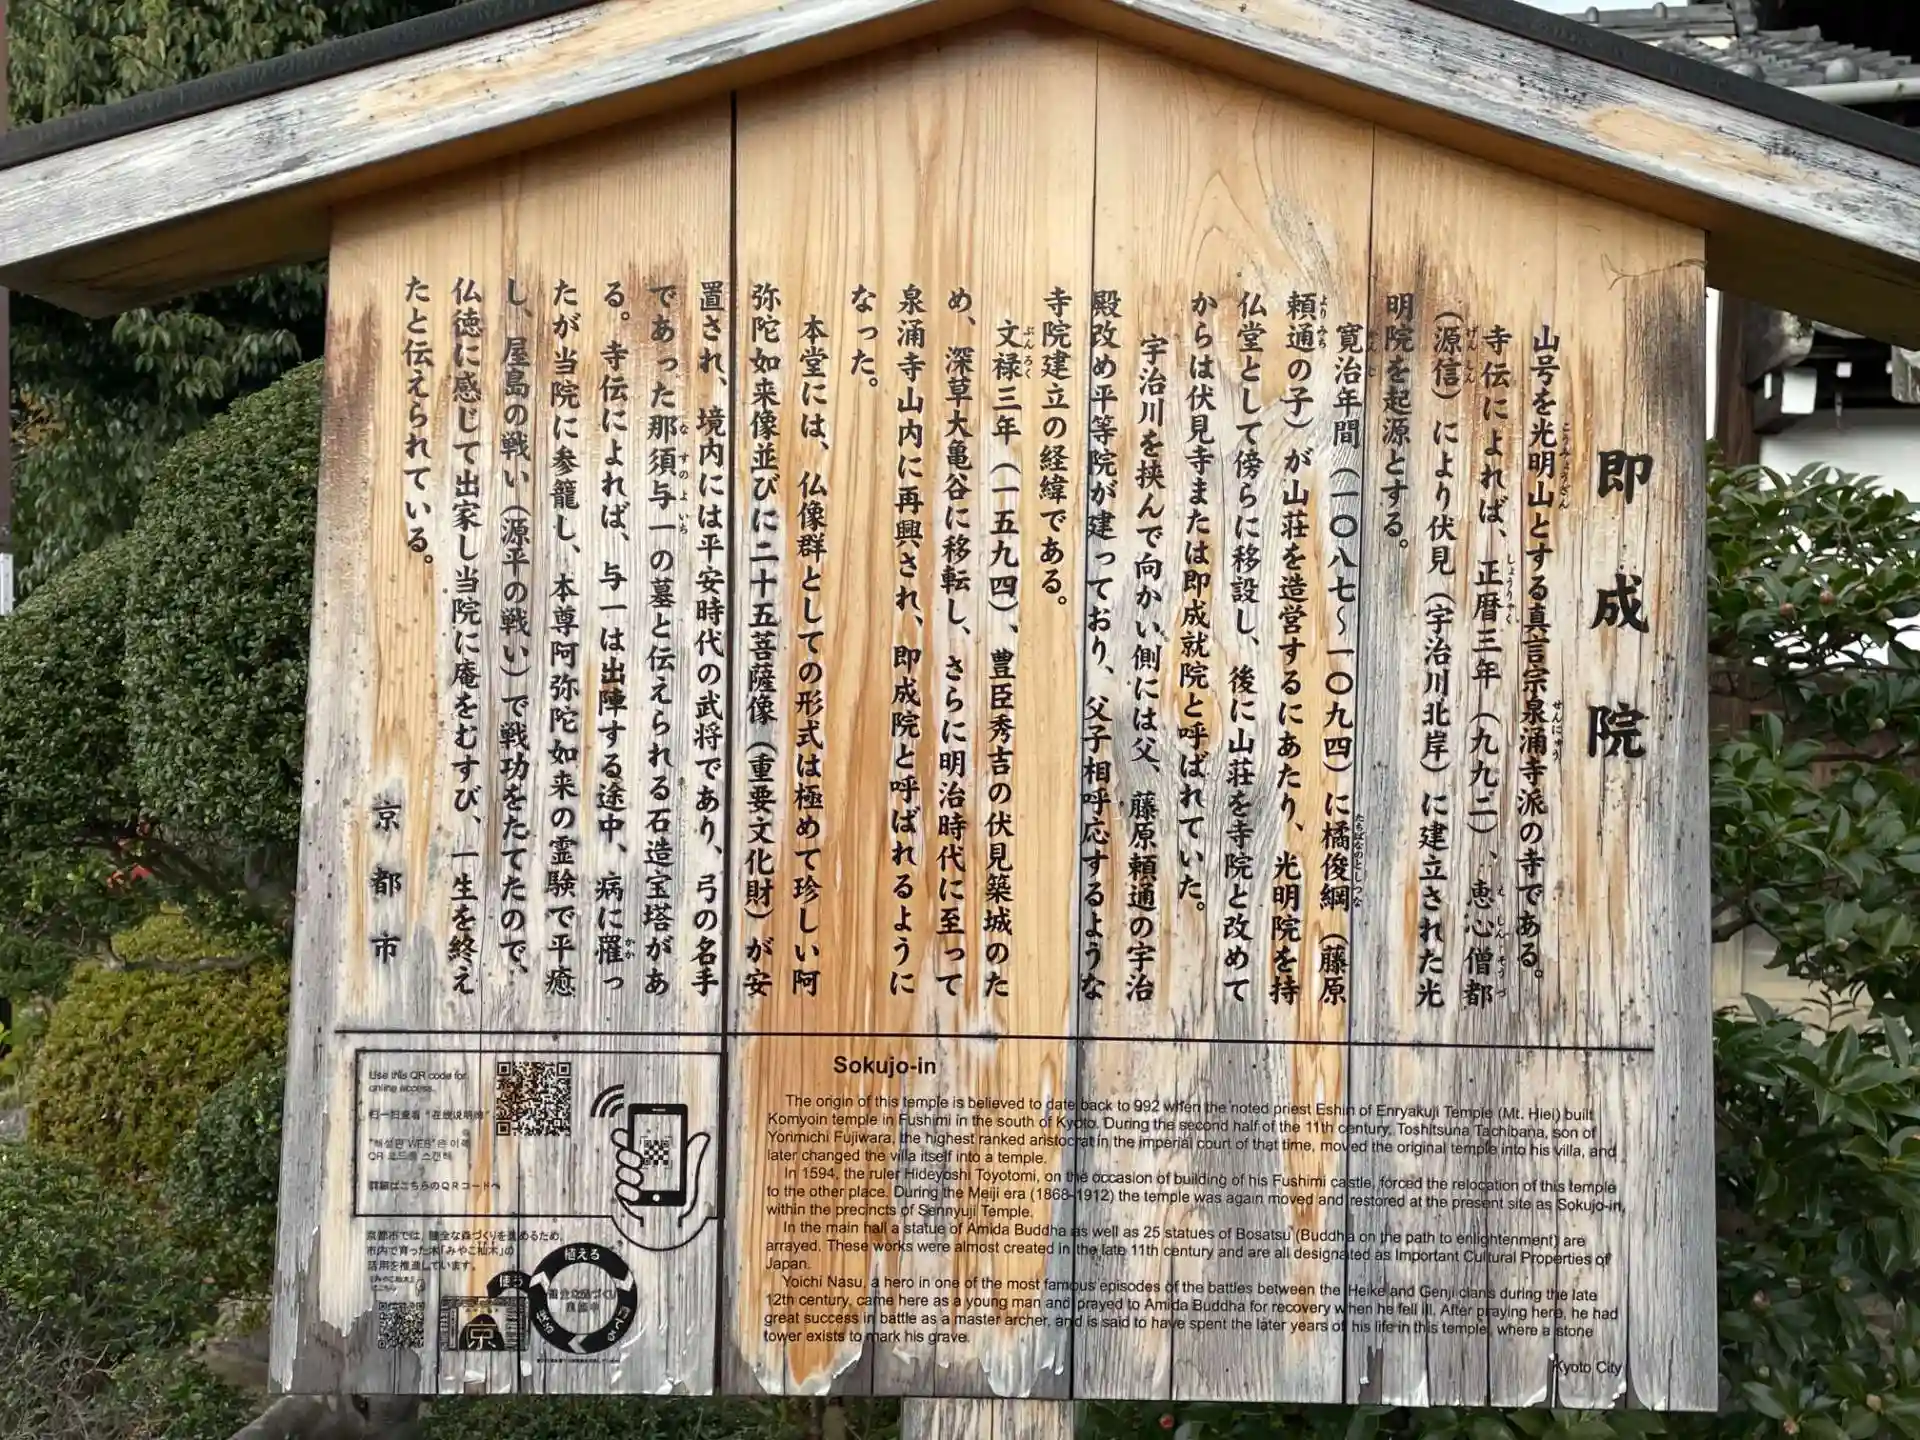 即成院
山号を光明山とする真言宗泉涌寺派の寺である。
寺伝によれば、正暦三年（九九二）、恵心僧都
（源信）により伏見（宇治川北岸）に建立された光
明院を起源とする。
寛治年間（一〇八七～一〇九四）に橘俊綱（藤原
頼通の子）が山荘を造営するにあたり、光明院を持
仏堂として傍らに移設し、後に山荘を寺院と改めて
からは伏見寺または即成就院と呼ばれていた。
宇治川を挟んで向かい側には父、藤原頼通の宇治
殿改め平等院が建っており、父子相呼応するような
寺院建立の経緯である。
文禄三年（一五九四）、豊臣秀吉の伏見築城のた
め、深草大亀谷に移転し、さらに明治時代に至って
泉涌寺山内に再興され、即成院と呼ばれるように
なった。
本堂には、仏像群としての形式は極めて珍しい阿
弥陀如来像並びに二十五菩薩像（重要文化財）が安
置され、境内には平安時代の武将であり、弓の名手
であった那須与一の墓と伝えられる石造宝塔があ
る。寺伝によれば、与一は出陣する途中、病に罹っ
たが当院に参籠し、本尊阿弥陀如来の霊験で平癒
し、屋島の戦い（源平の戦い）で戦功をたてたので、
仏徳に感じて出家し当院に庵をむすび、一生を終え
たと伝えられている。
京都市
Use this QR code for
online access.
扫一扫查看“在线说明牌”
"해설판 WEB"은 이쪽
QR 코드를 스캔해
詳細はこちらのQRコードへ
京都市では、健全な森づくりを進めるため、
市内で育った木「みやこ杣木」の
活用を推進しています。
植える
育てる
使う
京
Sokujo-in
The origin of this temple is believed to date back to 992 when the noted priest Eshin of Enryakuji Temple (Mt. Hiei) built
Komyoin temple in Fushimi in the south of Kyoto. During the second half of the 11th century, Toshitsuna Tachibana, son of
Yorimichi Fujiwara, the highest ranked aristocrat in the imperial court of that time, moved the original temple into his villa, and
later changed the villa itself into a temple.
In 1594, the ruler Hideyoshi Toyotomi, on the occasion of building of his Fushimi castle, forced the relocation of this temple
to the other place. During the Meiji era (1868-1912) the temple was again moved and restored at the present site as Sokujo-in,
within the precincts of Sennyuji Temple.
In the main hall a statue of Amida Buddha as well as 25 statues of Bosatsu (Buddha on the path to enlightenment) are
arrayed. These works were almost created in the late 11th century and are all designated as Important Cultural Properties of
Japan.
Yoichi Nasu, a hero in one of the most famous episodes of the battles between the Heike and Genji clans during the late
12th century, came here as a young man and prayed to Amida Buddha for recovery when he fell ill. After praying here, he had
great success in battle as a master archer, and is said to have spent the later years of his life in this temple, where a stone
tower exists to mark his grave.
Kyoto City